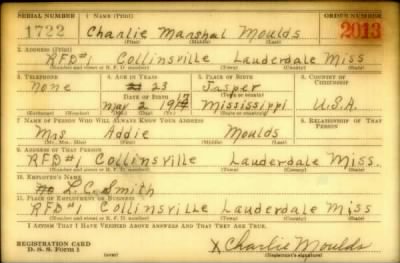 SERIAL NUMBER 1. NAME (Print) ORDER NUMBER
1722 Charlie Marshal Moulds 2013
(First) (Middle) (Last)
2. ADDRESS (Print)
RFD#1 Collinsville Lauderdale Miss
(Number and street or R. F. D. number) (Town) (County) (State)
3. TELEPHONE 4. AGE IN YEARS 5. PLACE OF BIRTH 6. COUNTRY OF CITIZENSHIP
none 23 Jasper
DATE OF BIRTH (Town or county)
17
may 2 19 Mississippi U.S.A.
(Exchange) (Number) (Mo.) (Day) (Yr.) (State or country)
7. NAME OF PERSON WHO WILL ALWAYS KNOW YOUR ADDRESS 8. RELATIONSHIP OF THAT PERSON
Mrs Addie Moulds
(Mr., Mrs., Miss) (First) (Middle) (Last)
9. ADDRESS OF THAT PERSON
RFD#1 Collinsville Lauderdale Miss.
(Number and street or R. F. D. number) (Town) (County) (State)
10. EMPLOYER'S NAME
L.C. Smith
11. PLACE OF EMPLOYMENT OR BUSINESS
RFD#1 Collinsville Lauderdale Miss
(Number and street or R. F. D. number) (Town) (County) (State)
I AFFIRM THAT I HAVE VERIFIED ABOVE ANSWERS AND THAT THEY ARE TRUE.
REGISTRATION CARD
D. S. S. Form 1 (over) X Charlie Moulds
(Registrant's signature)